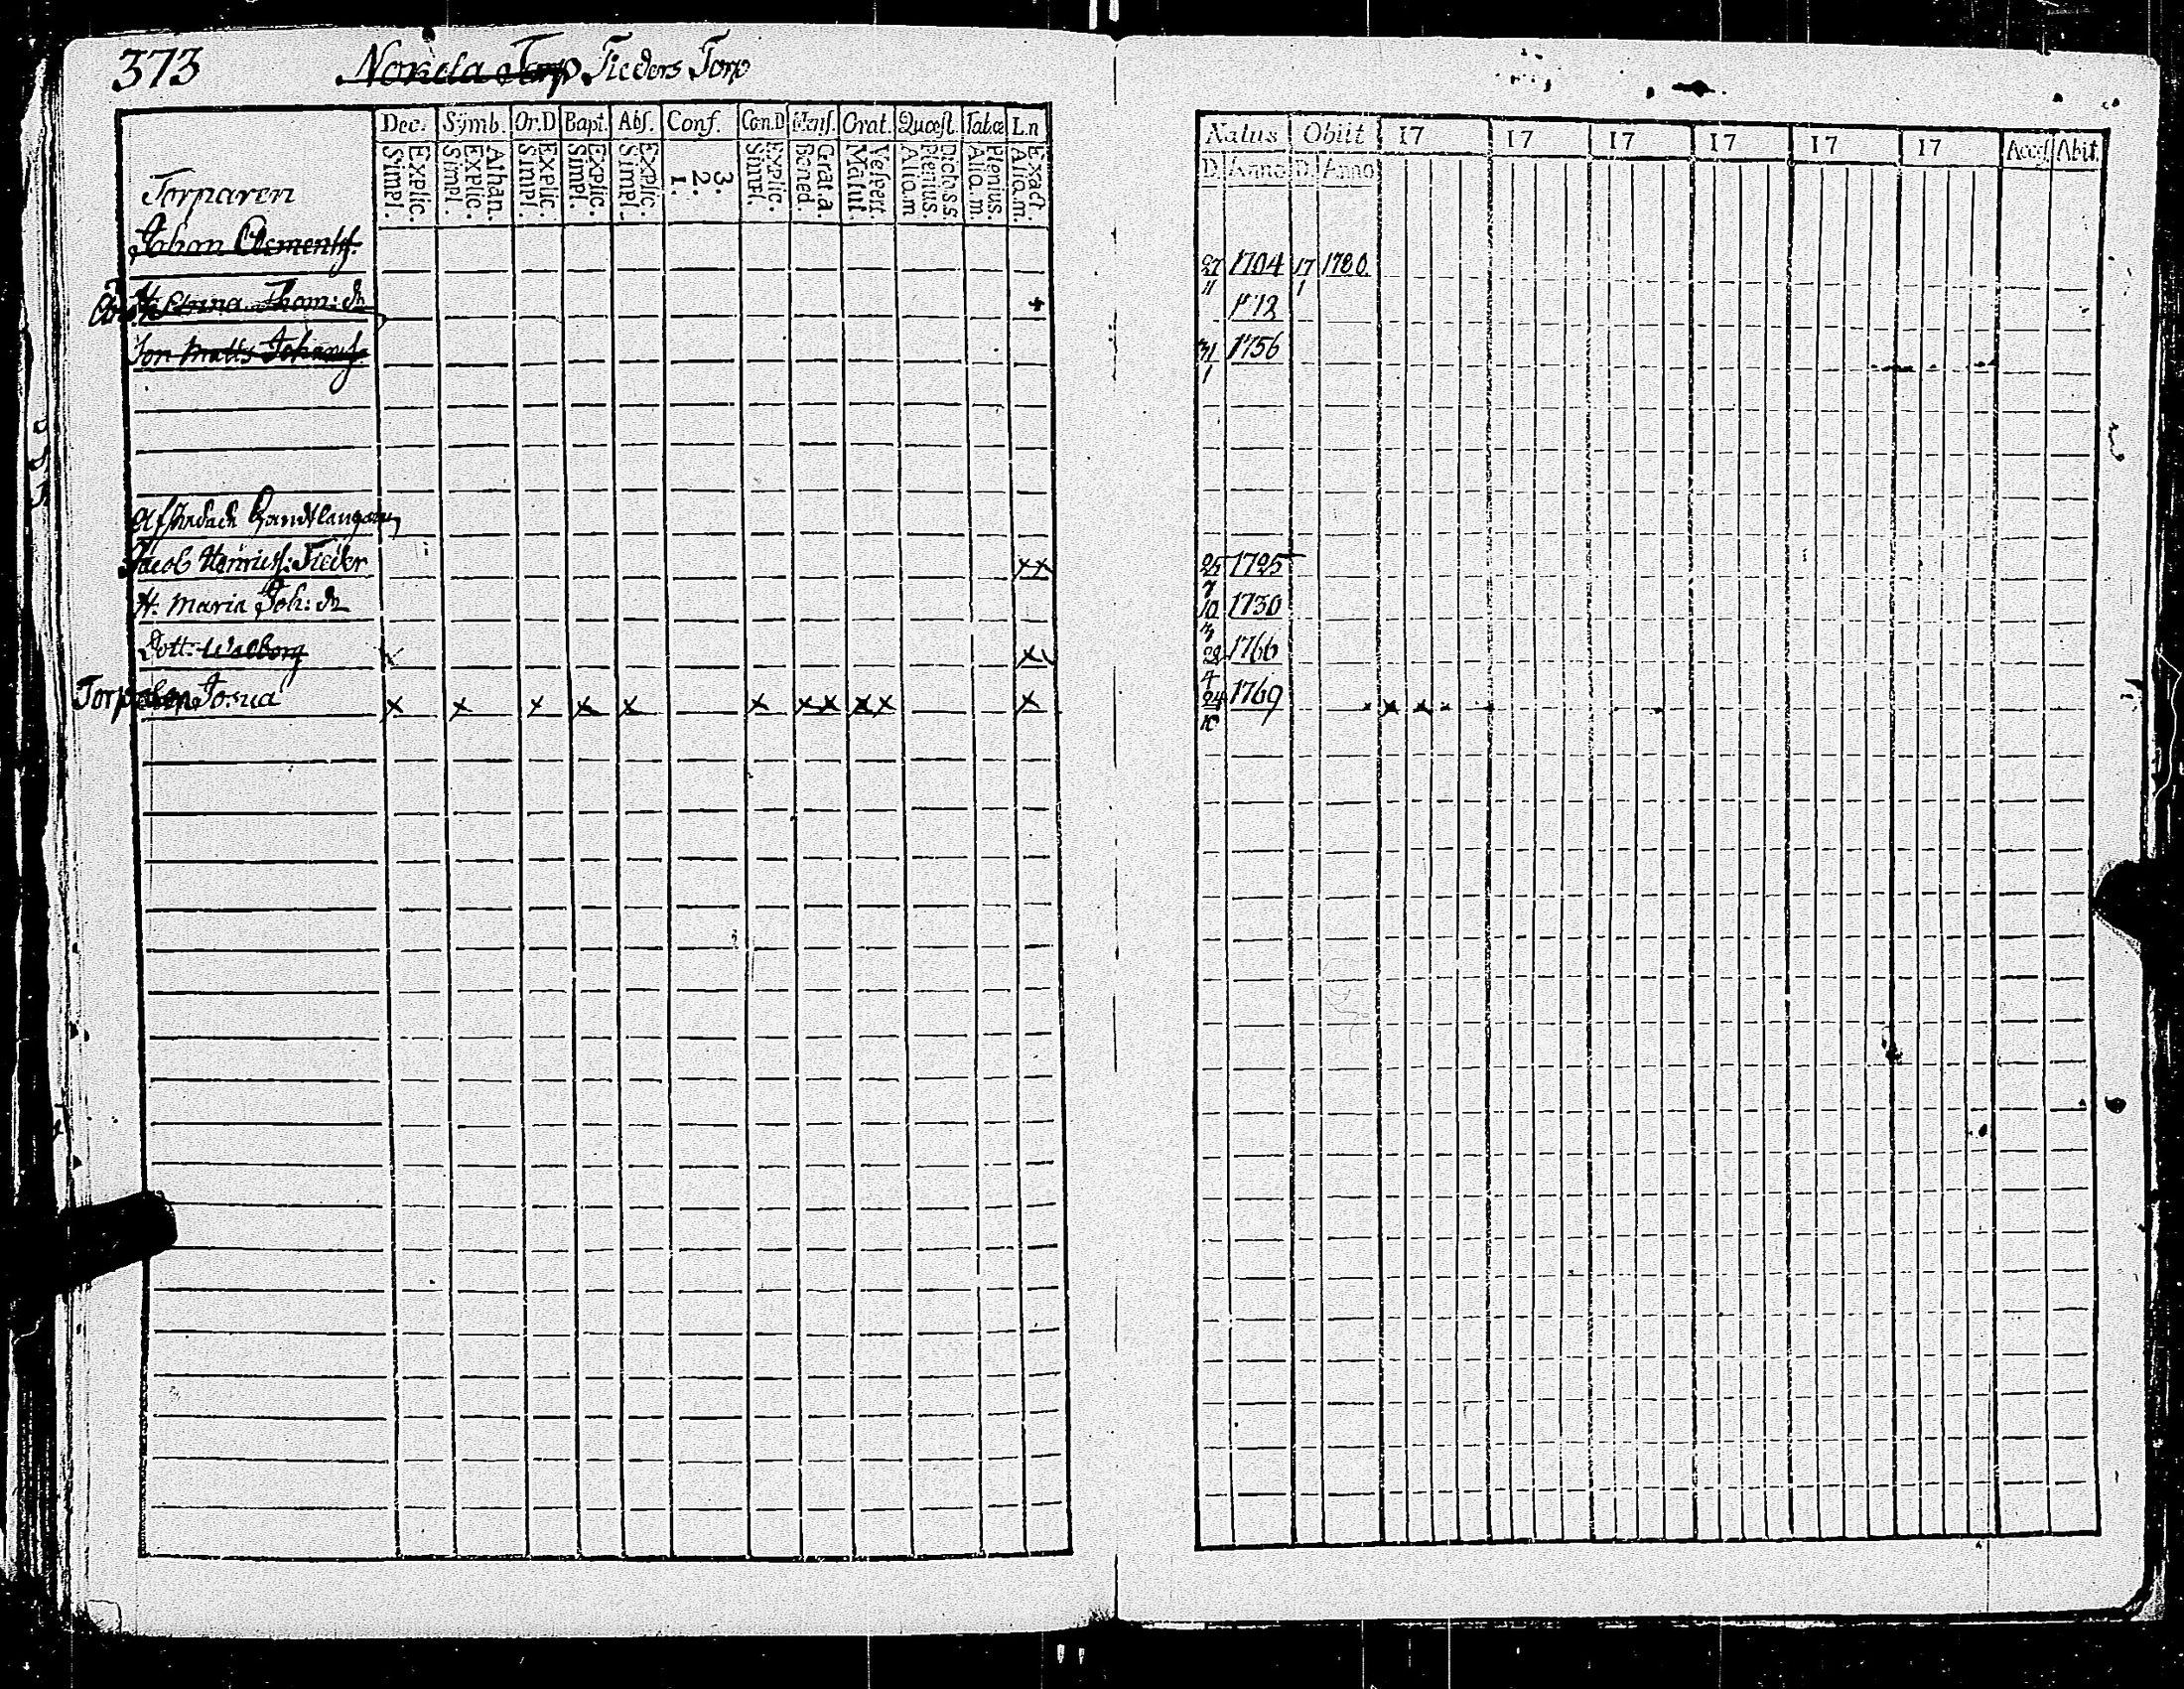 373 Nokela Torp Fieders Torp
Dec. Symb. Or.D Bapt. Abs. Conf. Can.D Mens. Orat. Quæst. Tabæ L.n
Explic. Simpl. Athan. Explic. Simpl. Explic. Simpl. Explic. Simpl. Explic. Simpl. 3. 2. 1. Explic. Simpl. Grat.a. Bened. Vespert. Matut. Dict.o.ss. Plenius Aliq.m Plenius. Aliq.m. Exact. Aliq.m.
Natus Obiit 17 17 17 17 17 17 Access. Abit.
D. Anno D. Anno
Torparen
Johan Clementss. 27/11 1704 17/1 1780
H. Thom: dr +
Son Matts Johanss. 31/1 1756
Afskedade Handtlangaren
Jacob Henricss: Fieder xx 25/7 1725
H. Maria Joh: dr 10/3 1730
Dott. Walborg x 28/4 1766
Torparen Josua x x x x x x xx xx x 24/10 1769